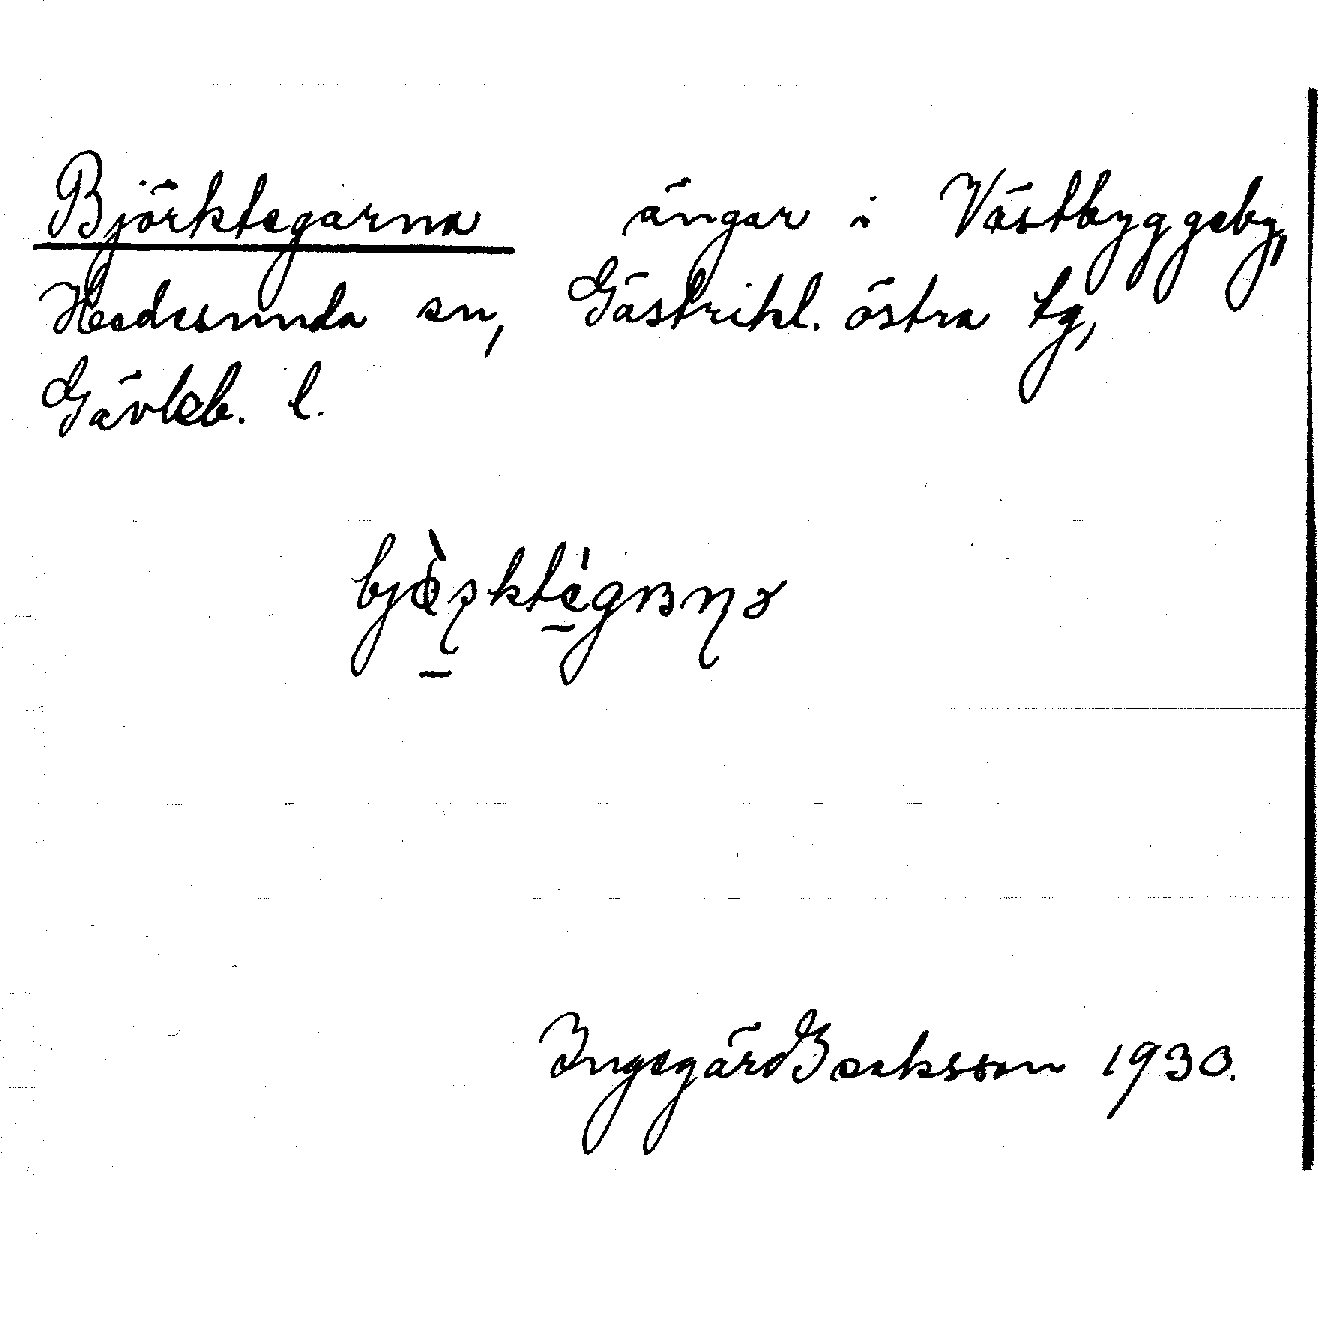 Björktegarna ängar i Västbyggeby,
Hedesunda sn, Gästrikl. östra tg,
Gävleb. l.
Ingegärd Isaksson 1930.